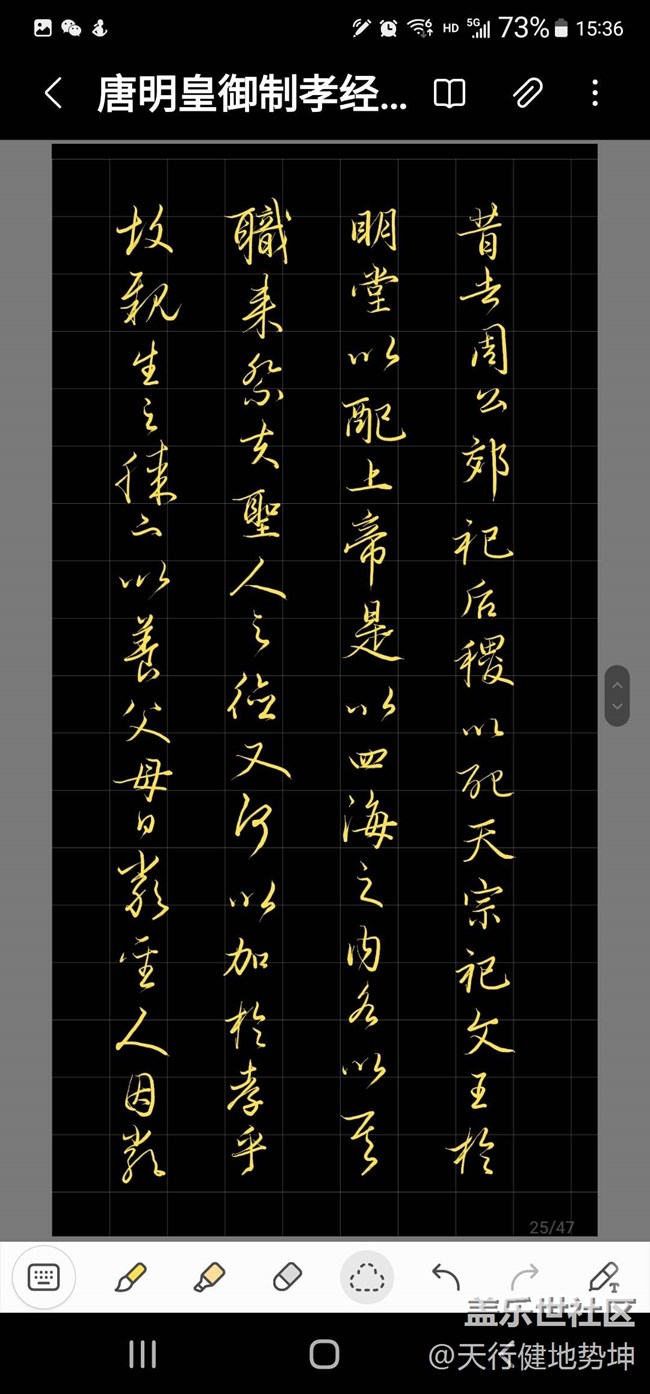 HD 5G 73% 15:36
唐明皇御制孝经...
昔者周公郊祀后稷以配天宗祀文王於
明堂以配上帝是以四海之内各以其
職来祭夫聖人之德又何以加於孝乎
故親生之膝下以養父母日嚴聖人因嚴
25/47
盖乐世社区
@天行健地势坤